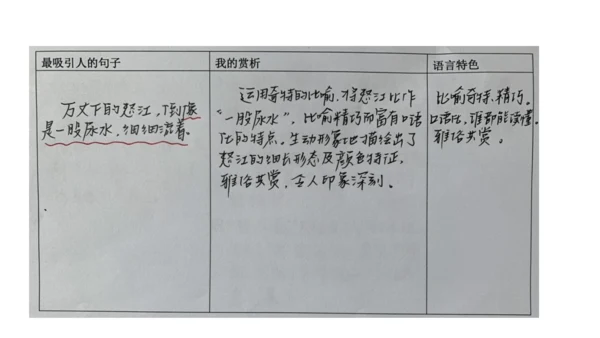 最吸引人的句子
我的赏析
语言特色
万丈下的怒江,倒像
是一股尿水,细细流着。
运用奇特的比喻,将怒江比作
“一股尿水”,比喻精巧而富有口语
化的特点。生动形象地描绘出了
怒江的细长形态及颜色特征,
雅俗共赏,令人印象深刻。
比喻奇特、精巧。
口语化,谁都能读懂。
雅俗共赏。